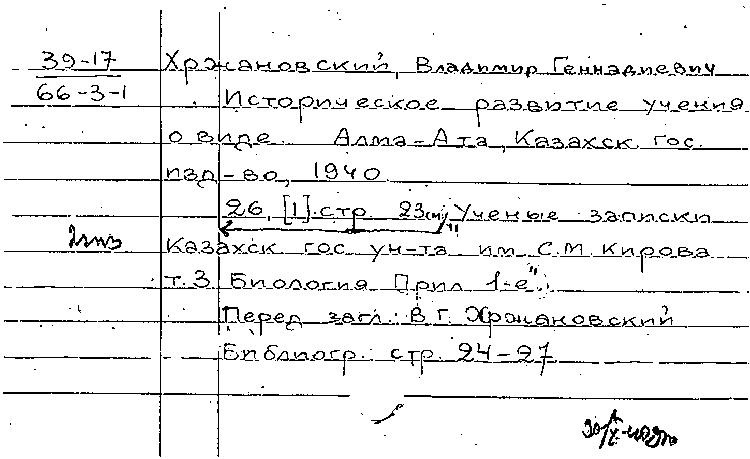 39-17
66-3-1
Хржановский, Владимир Геннадиевич
Историческое развитие учения
о виде. Алма-Ата, Казахск гос.
изд-во, 1940
26, [1] стр 23см "Ученые записки
2 экз
Казахск гос ун-та им С.М. Кирова
т.3 Биология Прил 1-е".
Перед загл: В.Г. Хржановский
Библиогр: стр. 24-27